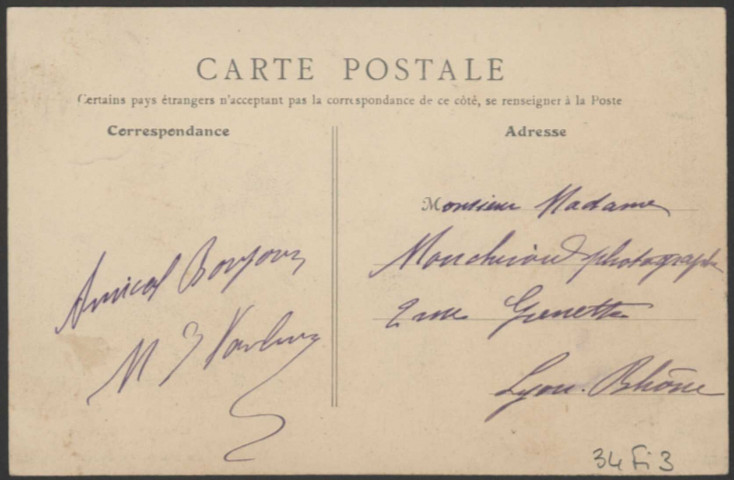 CARTE POSTALE
Certains pays étrangers n'acceptant pas la correspondance de ce côté, se renseigner à la Poste
Correspondance
Adresse
Amical Bonjour
M
Monsieur Madame
photographe
2 rue Grenette
Lyon. Rhône
34 Fi 3